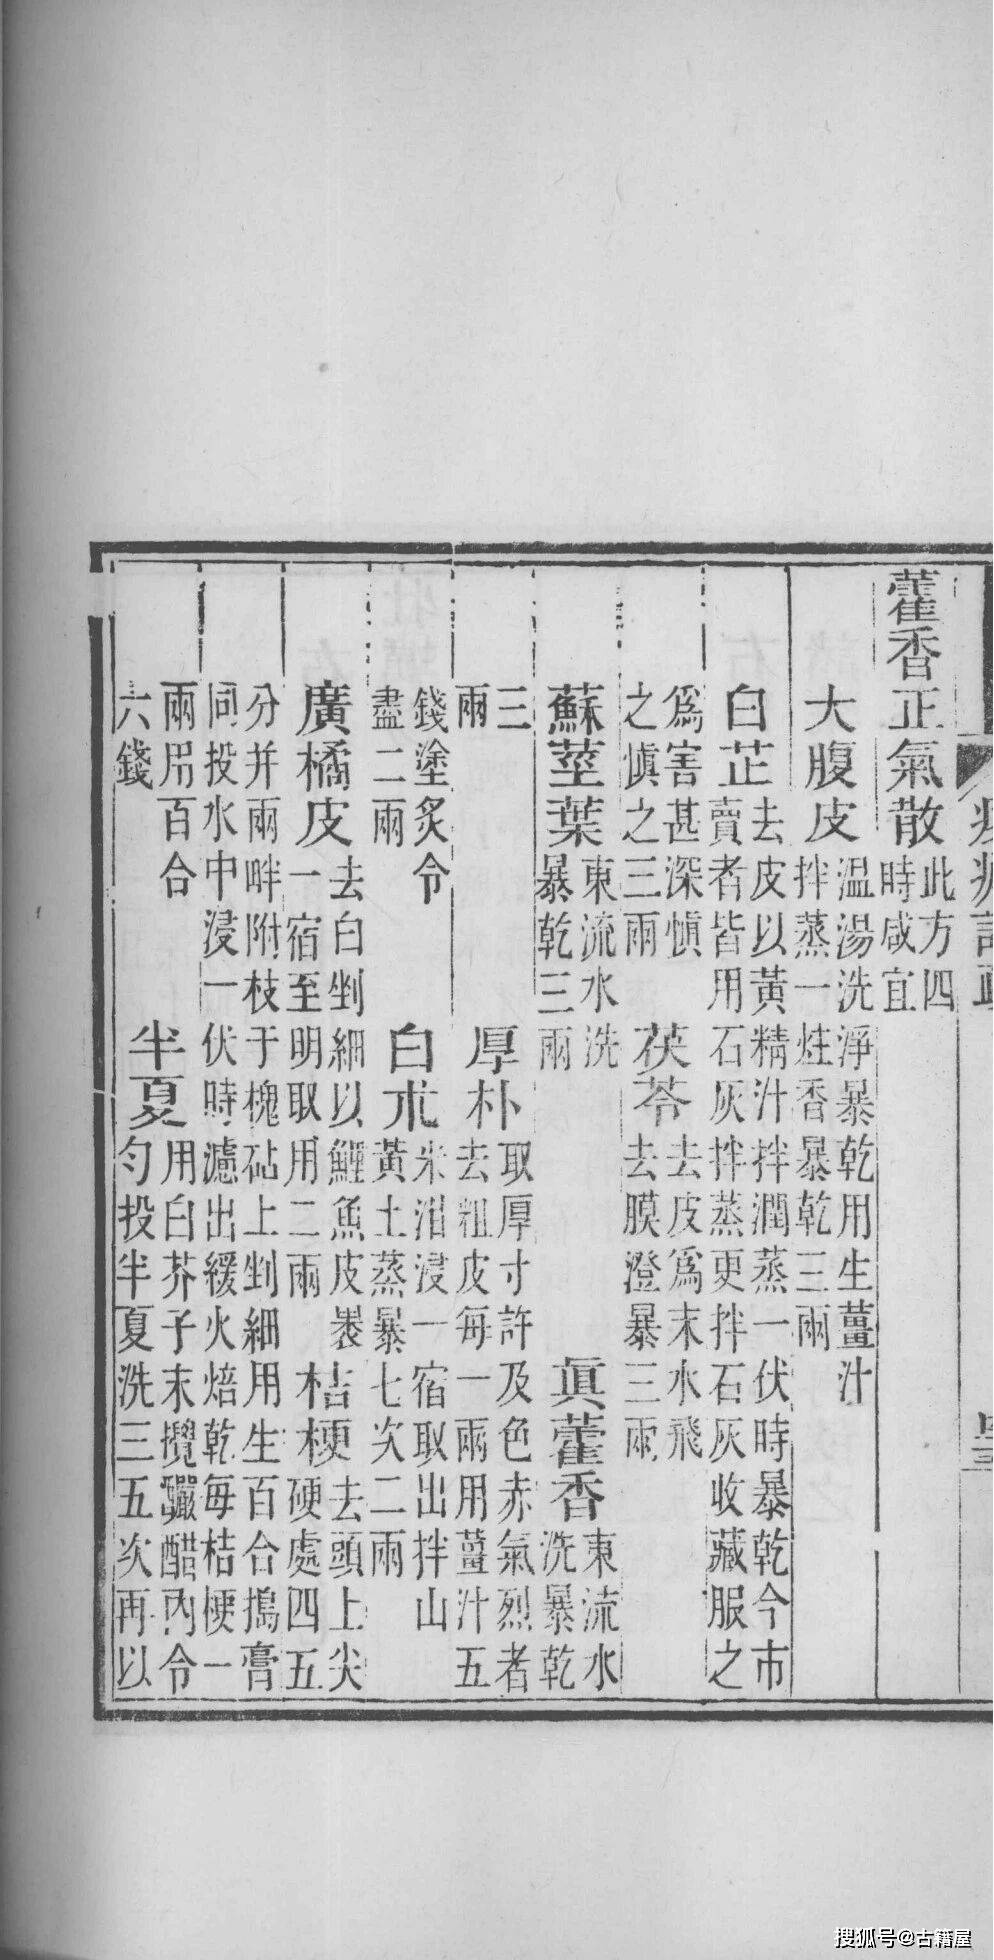 藿香正氣散此方四
時咸宜
大腹皮溫湯洗淨暴乾用生薑汁
拌蒸一炷香暴乾三兩
白芷去皮以黃精汁拌潤蒸一伏時暴乾今市
賣者皆用石灰拌蒸更拌石灰收藏服之
爲害甚深慎
之慎之三兩
茯苓去皮爲末水飛
去膜澄暴三兩
蘇莖葉東流水洗
暴乾三兩
眞藿香東流水
洗暴乾
三
兩
厚朴取厚寸許及色赤氣烈者
去粗皮每一兩用薑汁五
錢塗炙令
盡二兩
白朮米泔浸一宿取出拌山
黃土蒸暴七次二兩
廣橘皮去白剉細以鯉魚皮裹
一宿至明取用二兩
桔梗去頭上尖
硬處四五
分并兩畔附枝于槐砧上剉細用生百合搗膏
同投水中浸一伏時濾出緩火焙乾每桔梗一
兩用百合
六錢
半夏用白芥子末攪釅醋內令
勻投半夏洗三五次再以
搜狐号@古籍屋